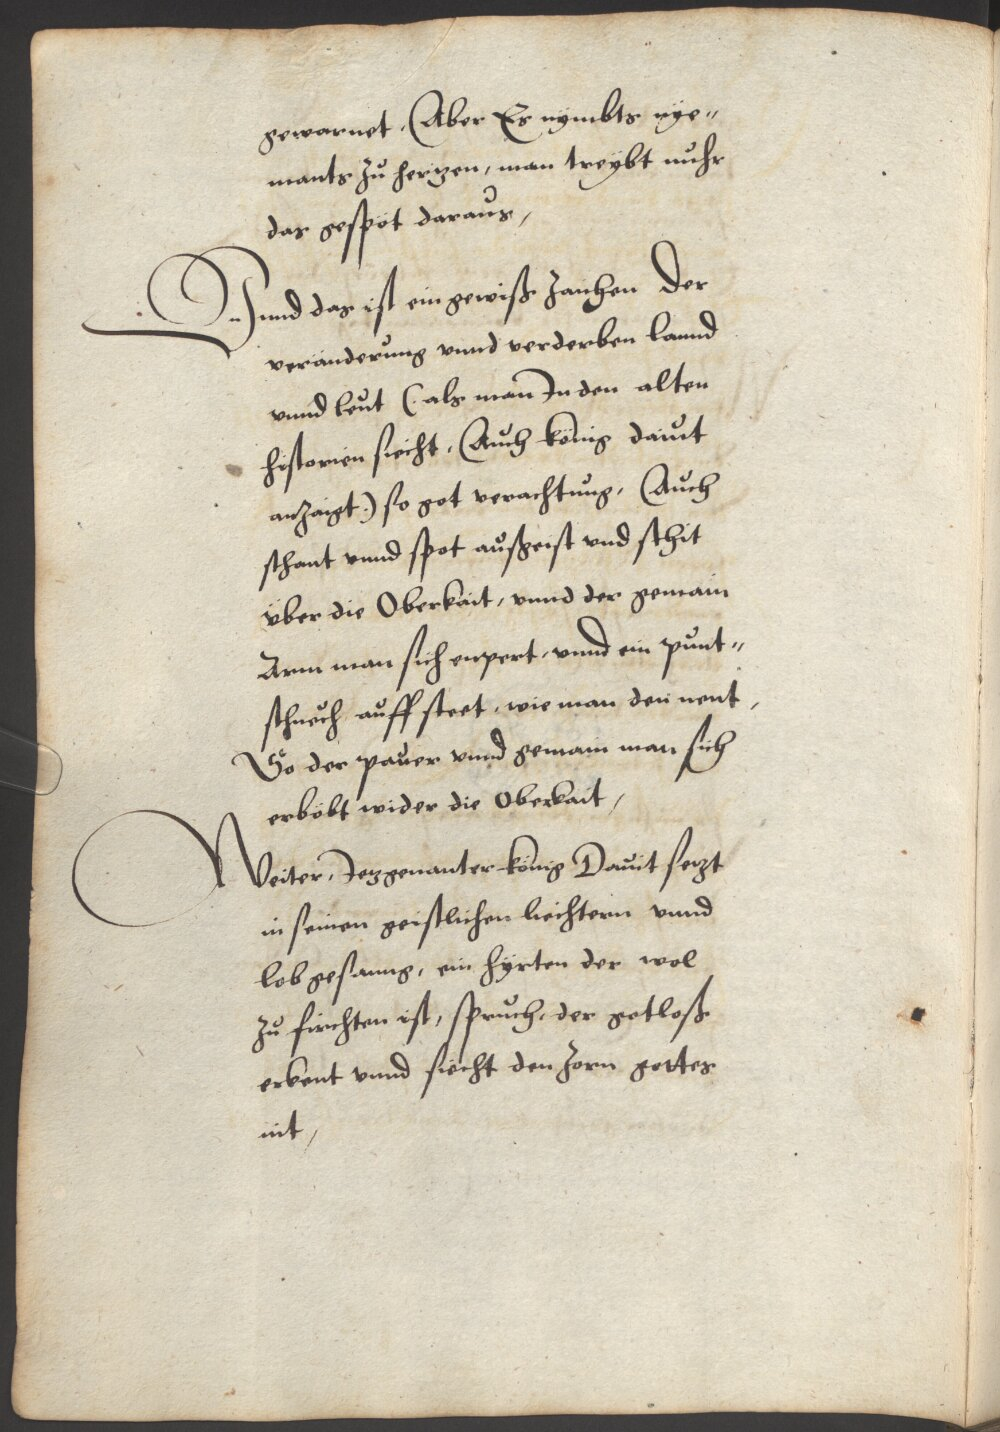 gewarnet, Aber Es nymbts nye=
mants zu hertzen, man treybt nuhr
das gespöt daraus,
Vnnd das ist ein gewiß zaichen der
veränderung vnnd verderben lannd
vnnd leut (: als man In den alten
historien siecht, Auch könig dauit
anzaigt:) so got verachtung, Auch
schant vnnd spot außgeist vnd schit
über die Oberkait, vnnd der gemain
Arm man sich enpert, vnnd ein punt=
schuech auff steet, wie man den nent,
So der pauer vnnd gemain man sich
erböbt wider die Oberkait,
Weiter, Jetzgenanter könig Dauit setzt
in seinen geistlichen liechtern vnnd
lobgesanng, ein hyrten der wol
zu fürchten ist, spruch, der gotloß
erkent vnnd siecht den zorn gottes
nit,